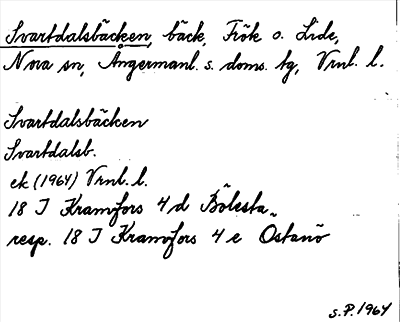 Svartdalsbäcken, bäck, Frök o. Lide,
Nora sn, Ångermanl. s. doms. tg, Vrnl. l.
Svartdalsbäcken
Svartdalsb.
ek (1964) Vrnl. l.
18 I Kramfors 4 d Bölesta
resp. 18 I Kramfors 4 e Östanö
s.P. 1964